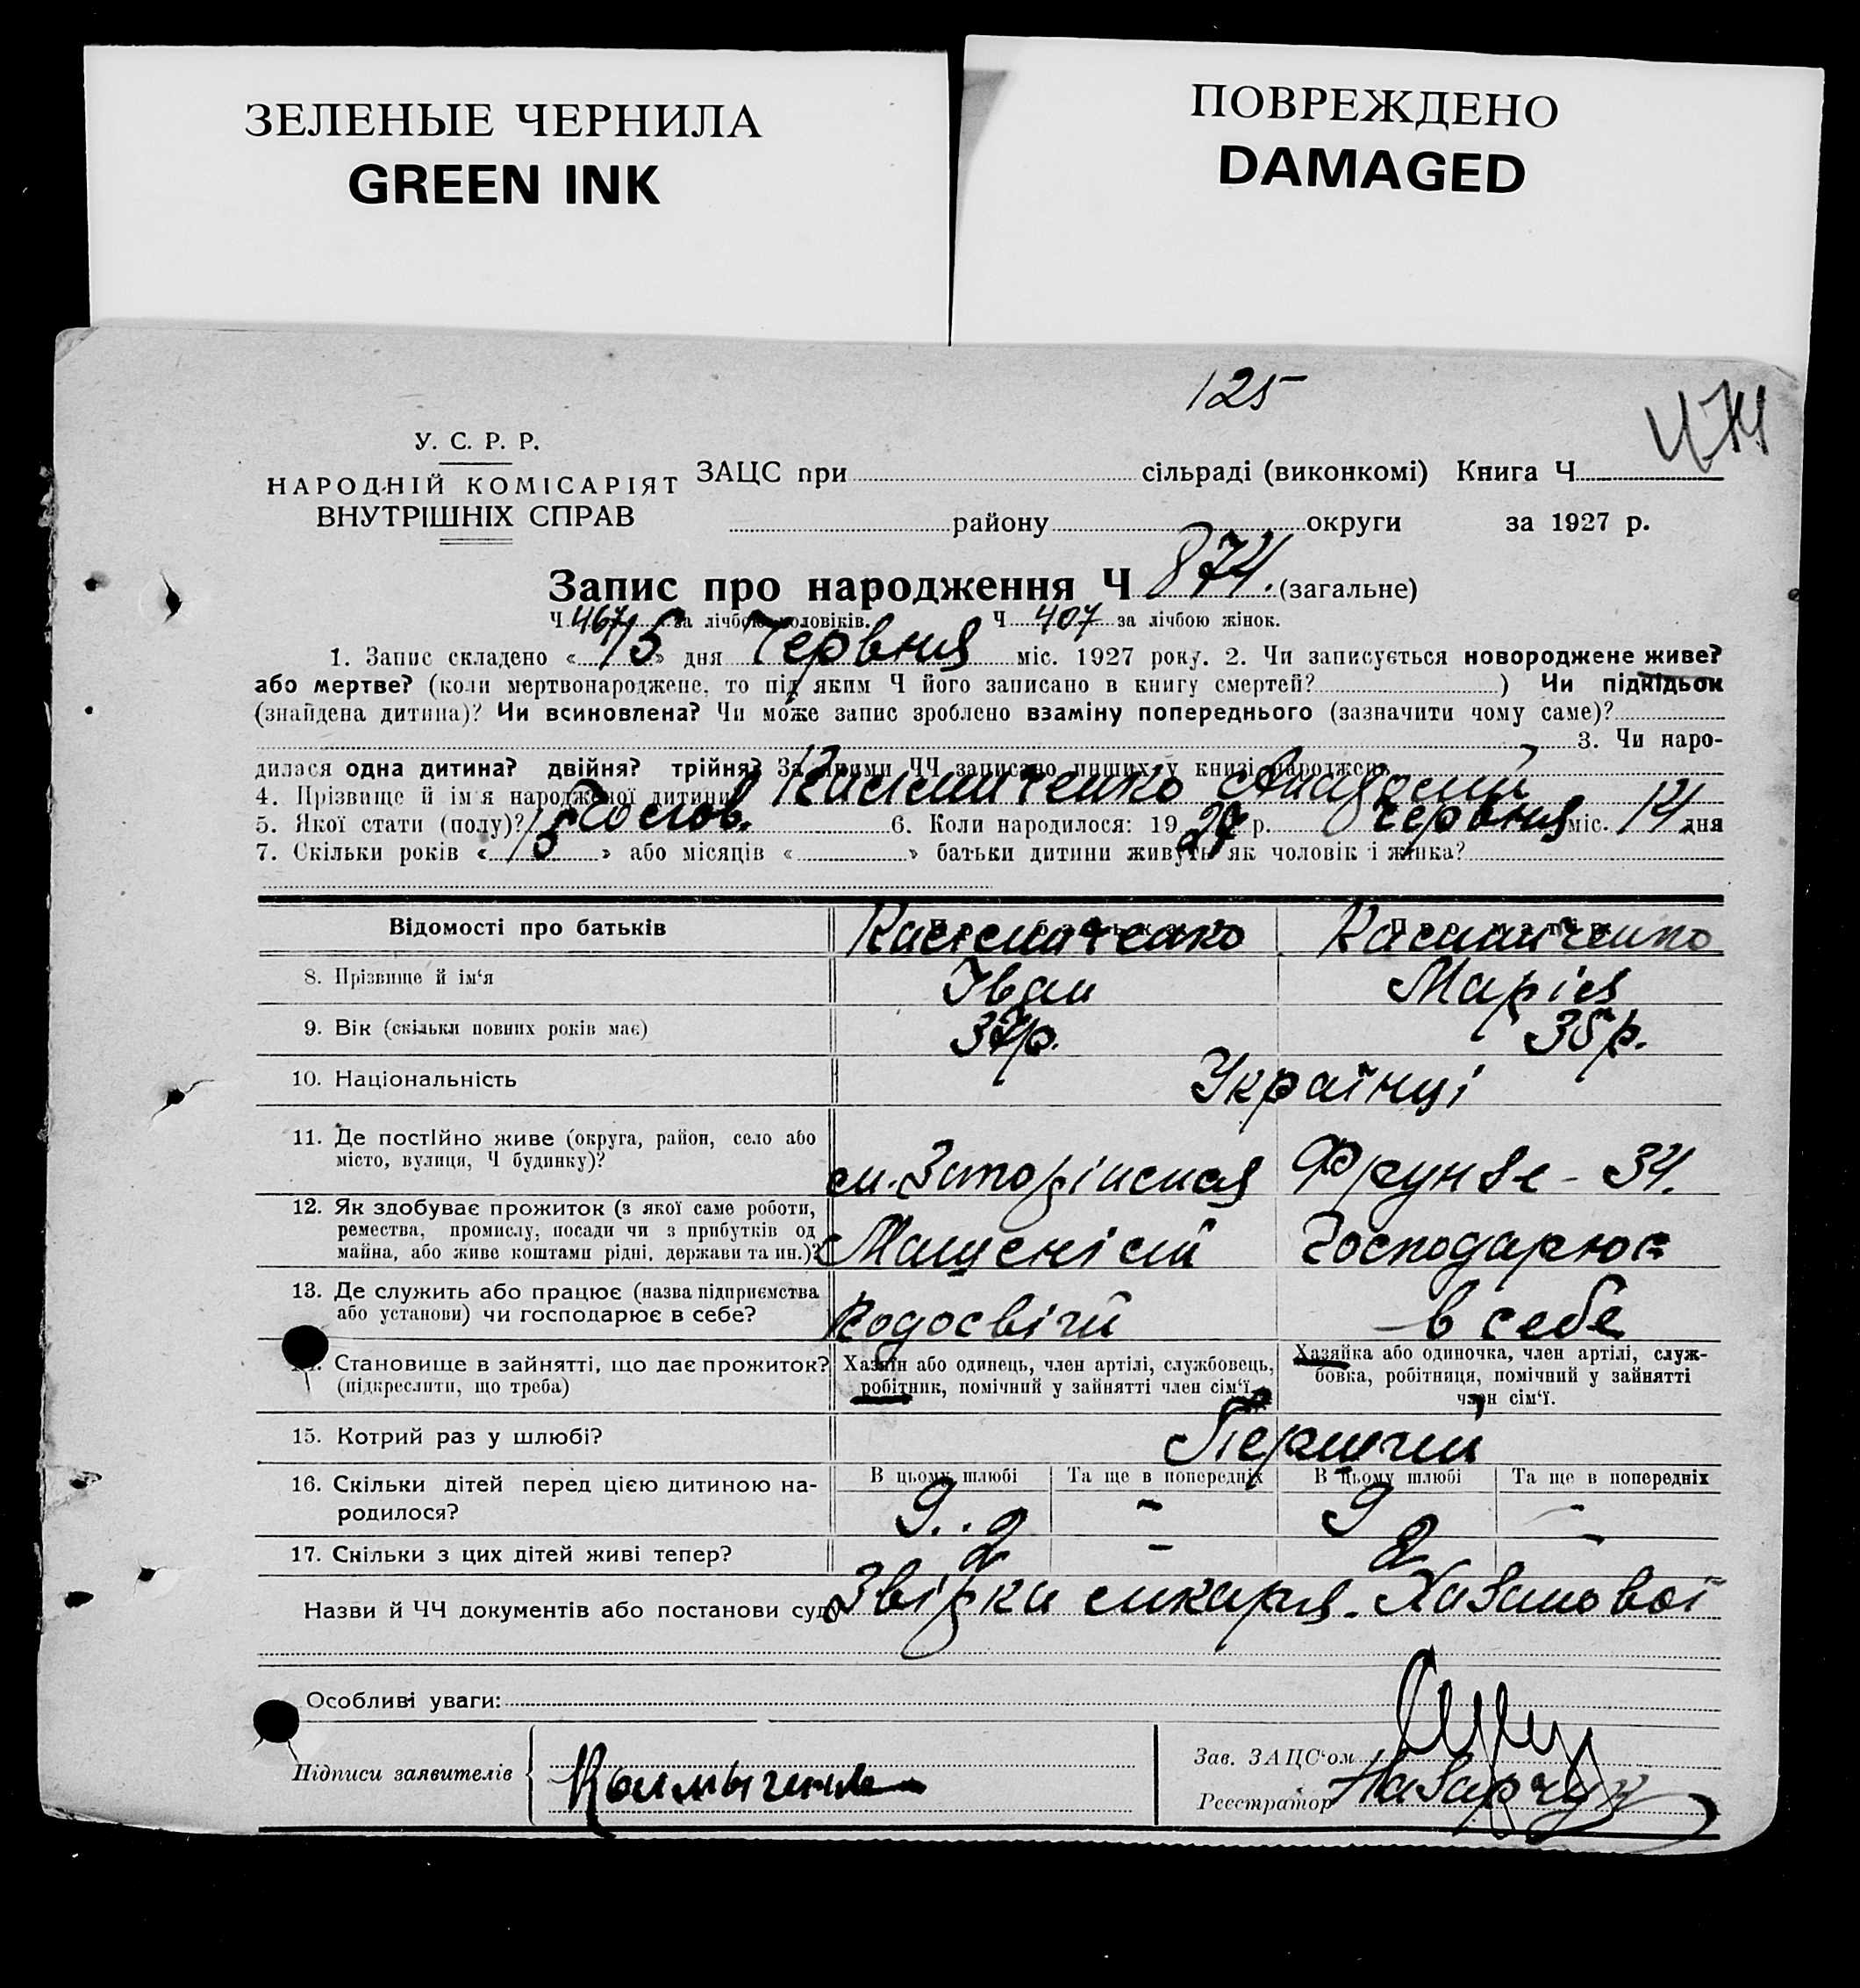 ЗЕЛЕНЫЕ ЧЕРНИЛА
GREEN INK
ПОВРЕЖДЕНО
DAMAGED
125
У. С. Р. Р.
НАРОДНІЙ КОМІСАРІЯТ
ВНУТРІШНІХ СПРАВ
ЗАЦС при сільраді (виконкомі) Книга Ч
району округи за 1927 р.
Запис про народження Ч 874. (загальне)
Ч 467 за лічбою чоловіків. Ч 407 за лічбою жінок.
1. Запис складено « 15 » дня Червня міс. 1927 року. 2. Чи записується новороджене живе?
або мертве? (коли мертвонароджене, то під яким Ч його записано в книгу смертей? ) Чи підкідьок
(знайдена дитина)? Чи всиновлена? Чи може запис зроблено взаміну попереднього (зазначити чому саме)?
3. Чи наро-
дилася одна дитина? двійня? трійня? За якими ЧЧ записано инших у книзі народжень
4. Прізвище й ім'я народженої дитини
5. Якої стати (полу)? Чолов. 6. Коли народилося: 1927 р. червня міс. 14 дня
7. Скільки років « 15 » або місяців « » батьки дитини живуть як чоловік і жінка?
Відомості про батьків
8. Прізвище й ім'я Іван Марія
9. Вік (скільки повних років має) 37р. 35р.
10. Національність Українці
11. Де постійно живе (округа, район, село або
місто, вулиця, Ч будинку)? Фрунзе - 34.
12. Як здобуває прожиток (з якої саме роботи,
ремества, промислу, посади чи з прибутків од
майна, або живе коштами рідні, держави та ин.)? Господарює
13. Де служить або працює (назва підприємства
або установи) чи господарює в себе? в себе
14. Становище в зайнятті, що дає прожиток?
(підкреслити, що треба)
Хазяїн або одинець, член артілі, службовець,
робітник, помічний у зайнятті член сім'ї.
Хазяйка або одиночка, член артілі, служ-
бовка, робітниця, помічний у зайнятті
член сім'ї.
15. Котрий раз у шлюбі? Перший
В цьому шлюбі Та ще в попередніх В цьому шлюбі Та ще в попередніх
16. Скільки дітей перед цією дитиною на-
родилося? 9 - 9 -
17. Скільки з цих дітей живі тепер? 2 - 2 -
Назви й ЧЧ документів або постанови суду
Особливі уваги:
Підписи заявителів
Зав. ЗАЦС'ом
Реєстратор Назарчук